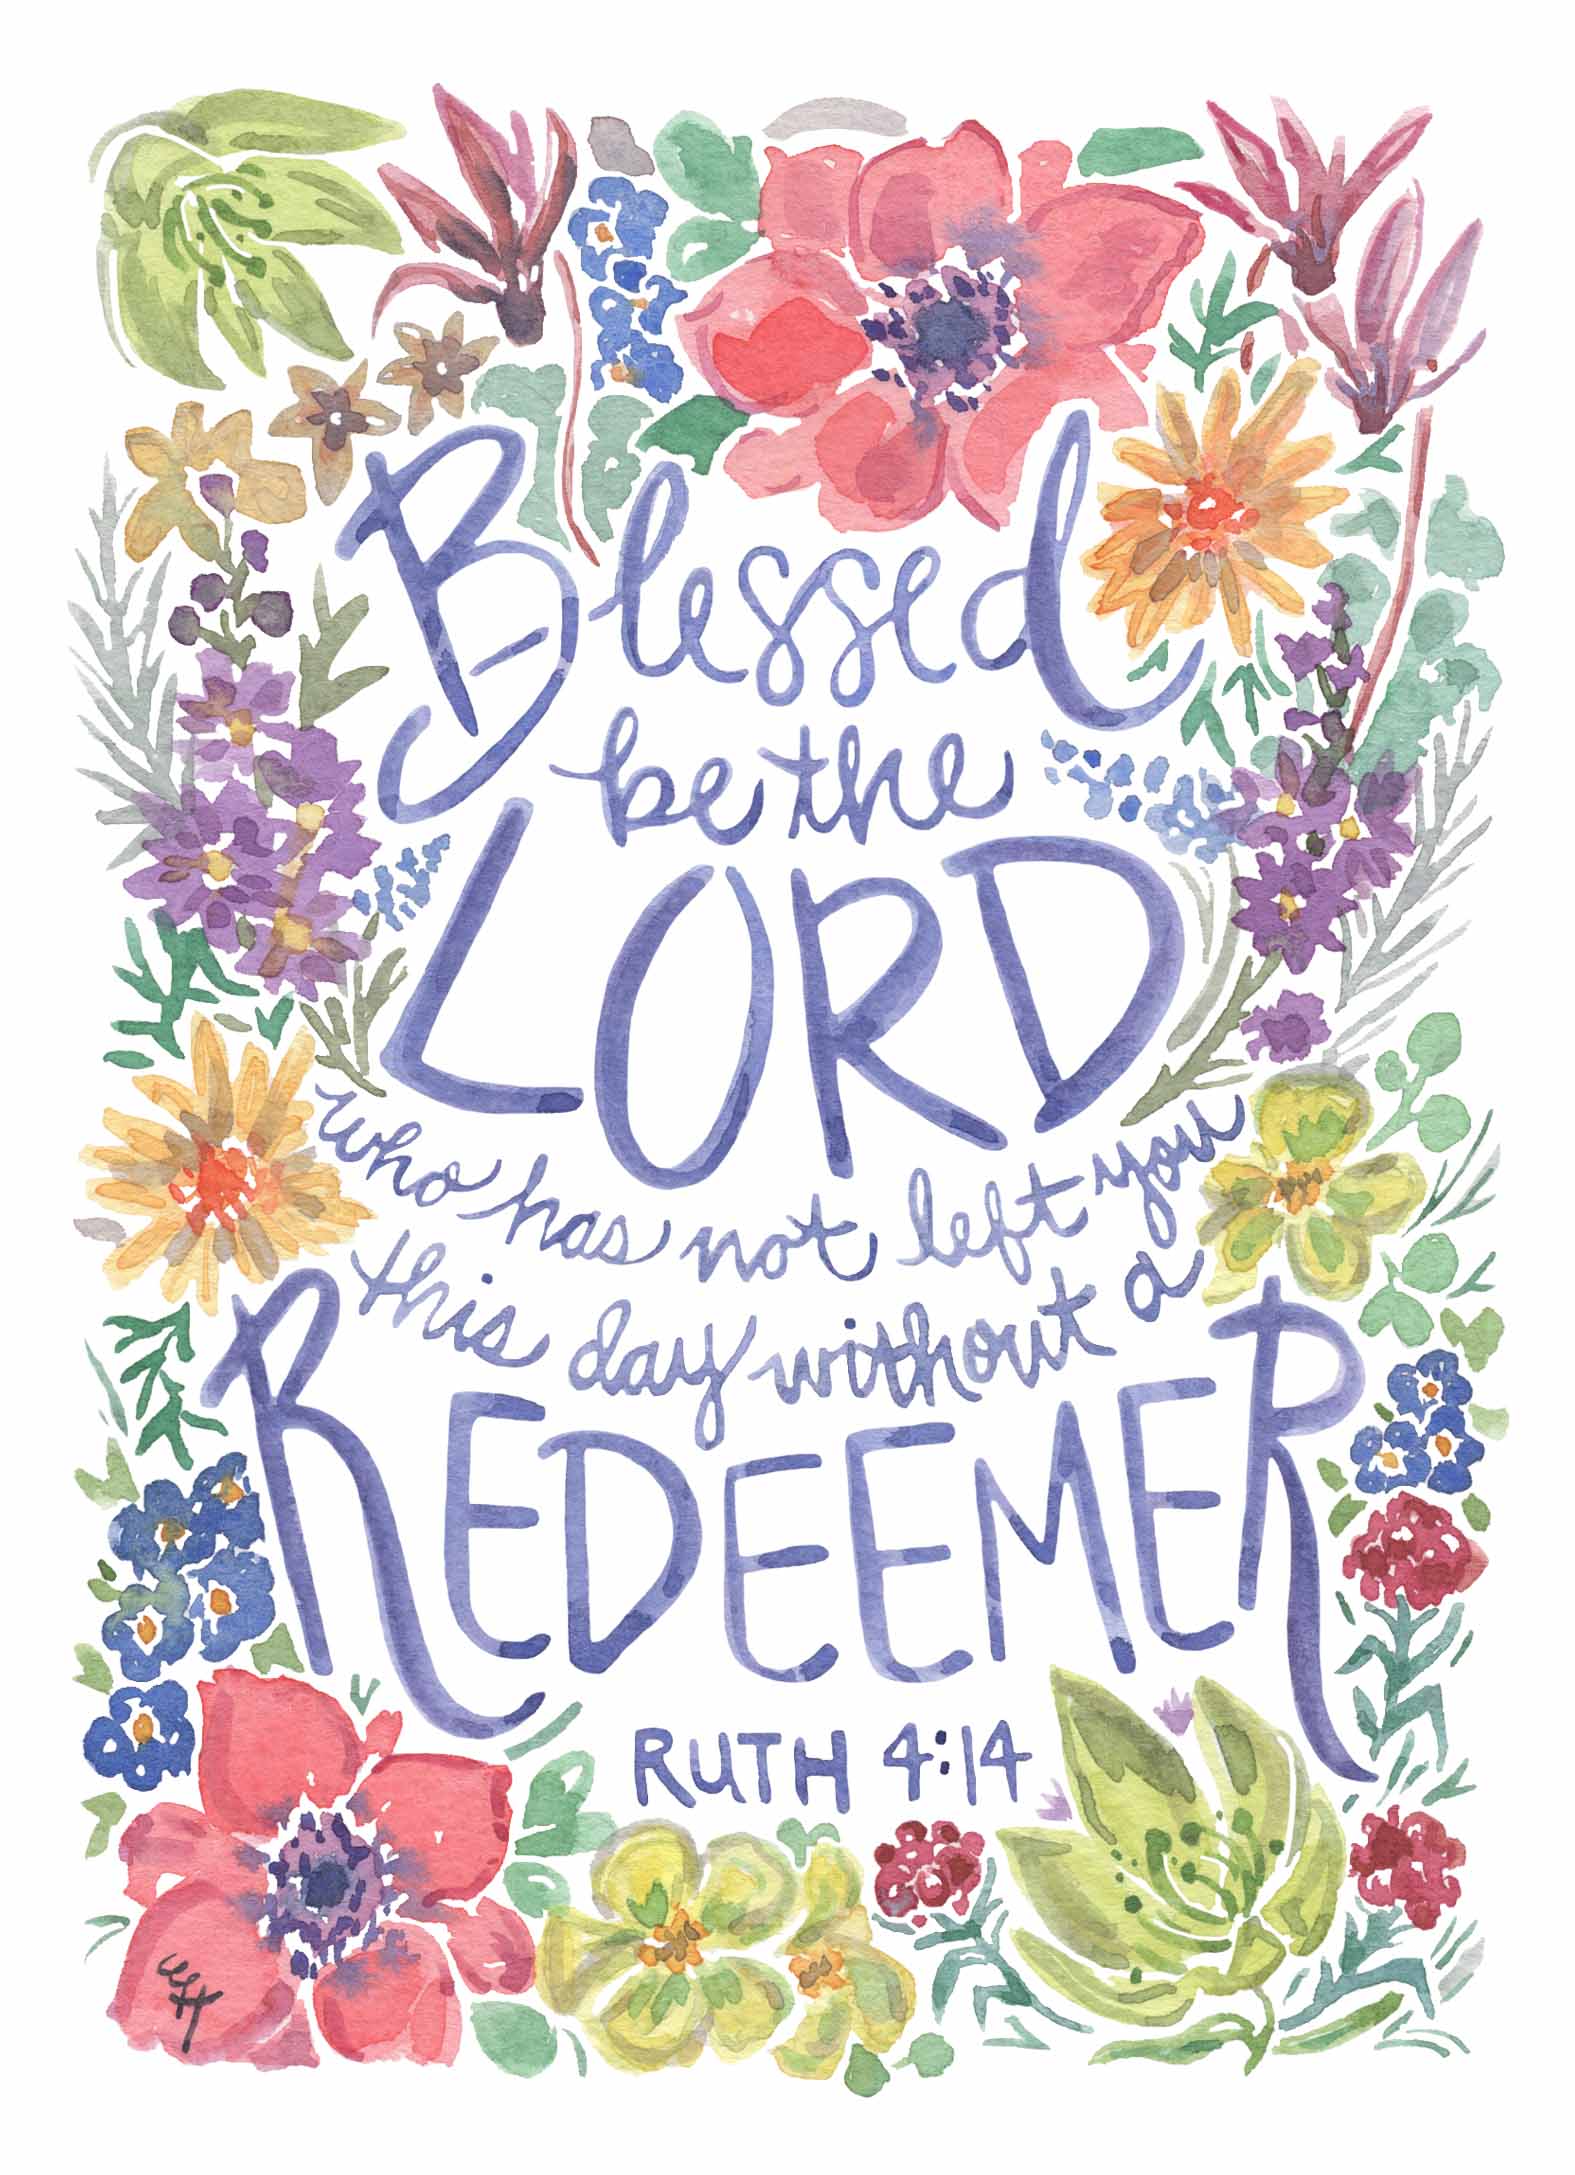 Blessed
be the
LORD
who has not left you
this day without a
REDEEMER
RUTH 4:14